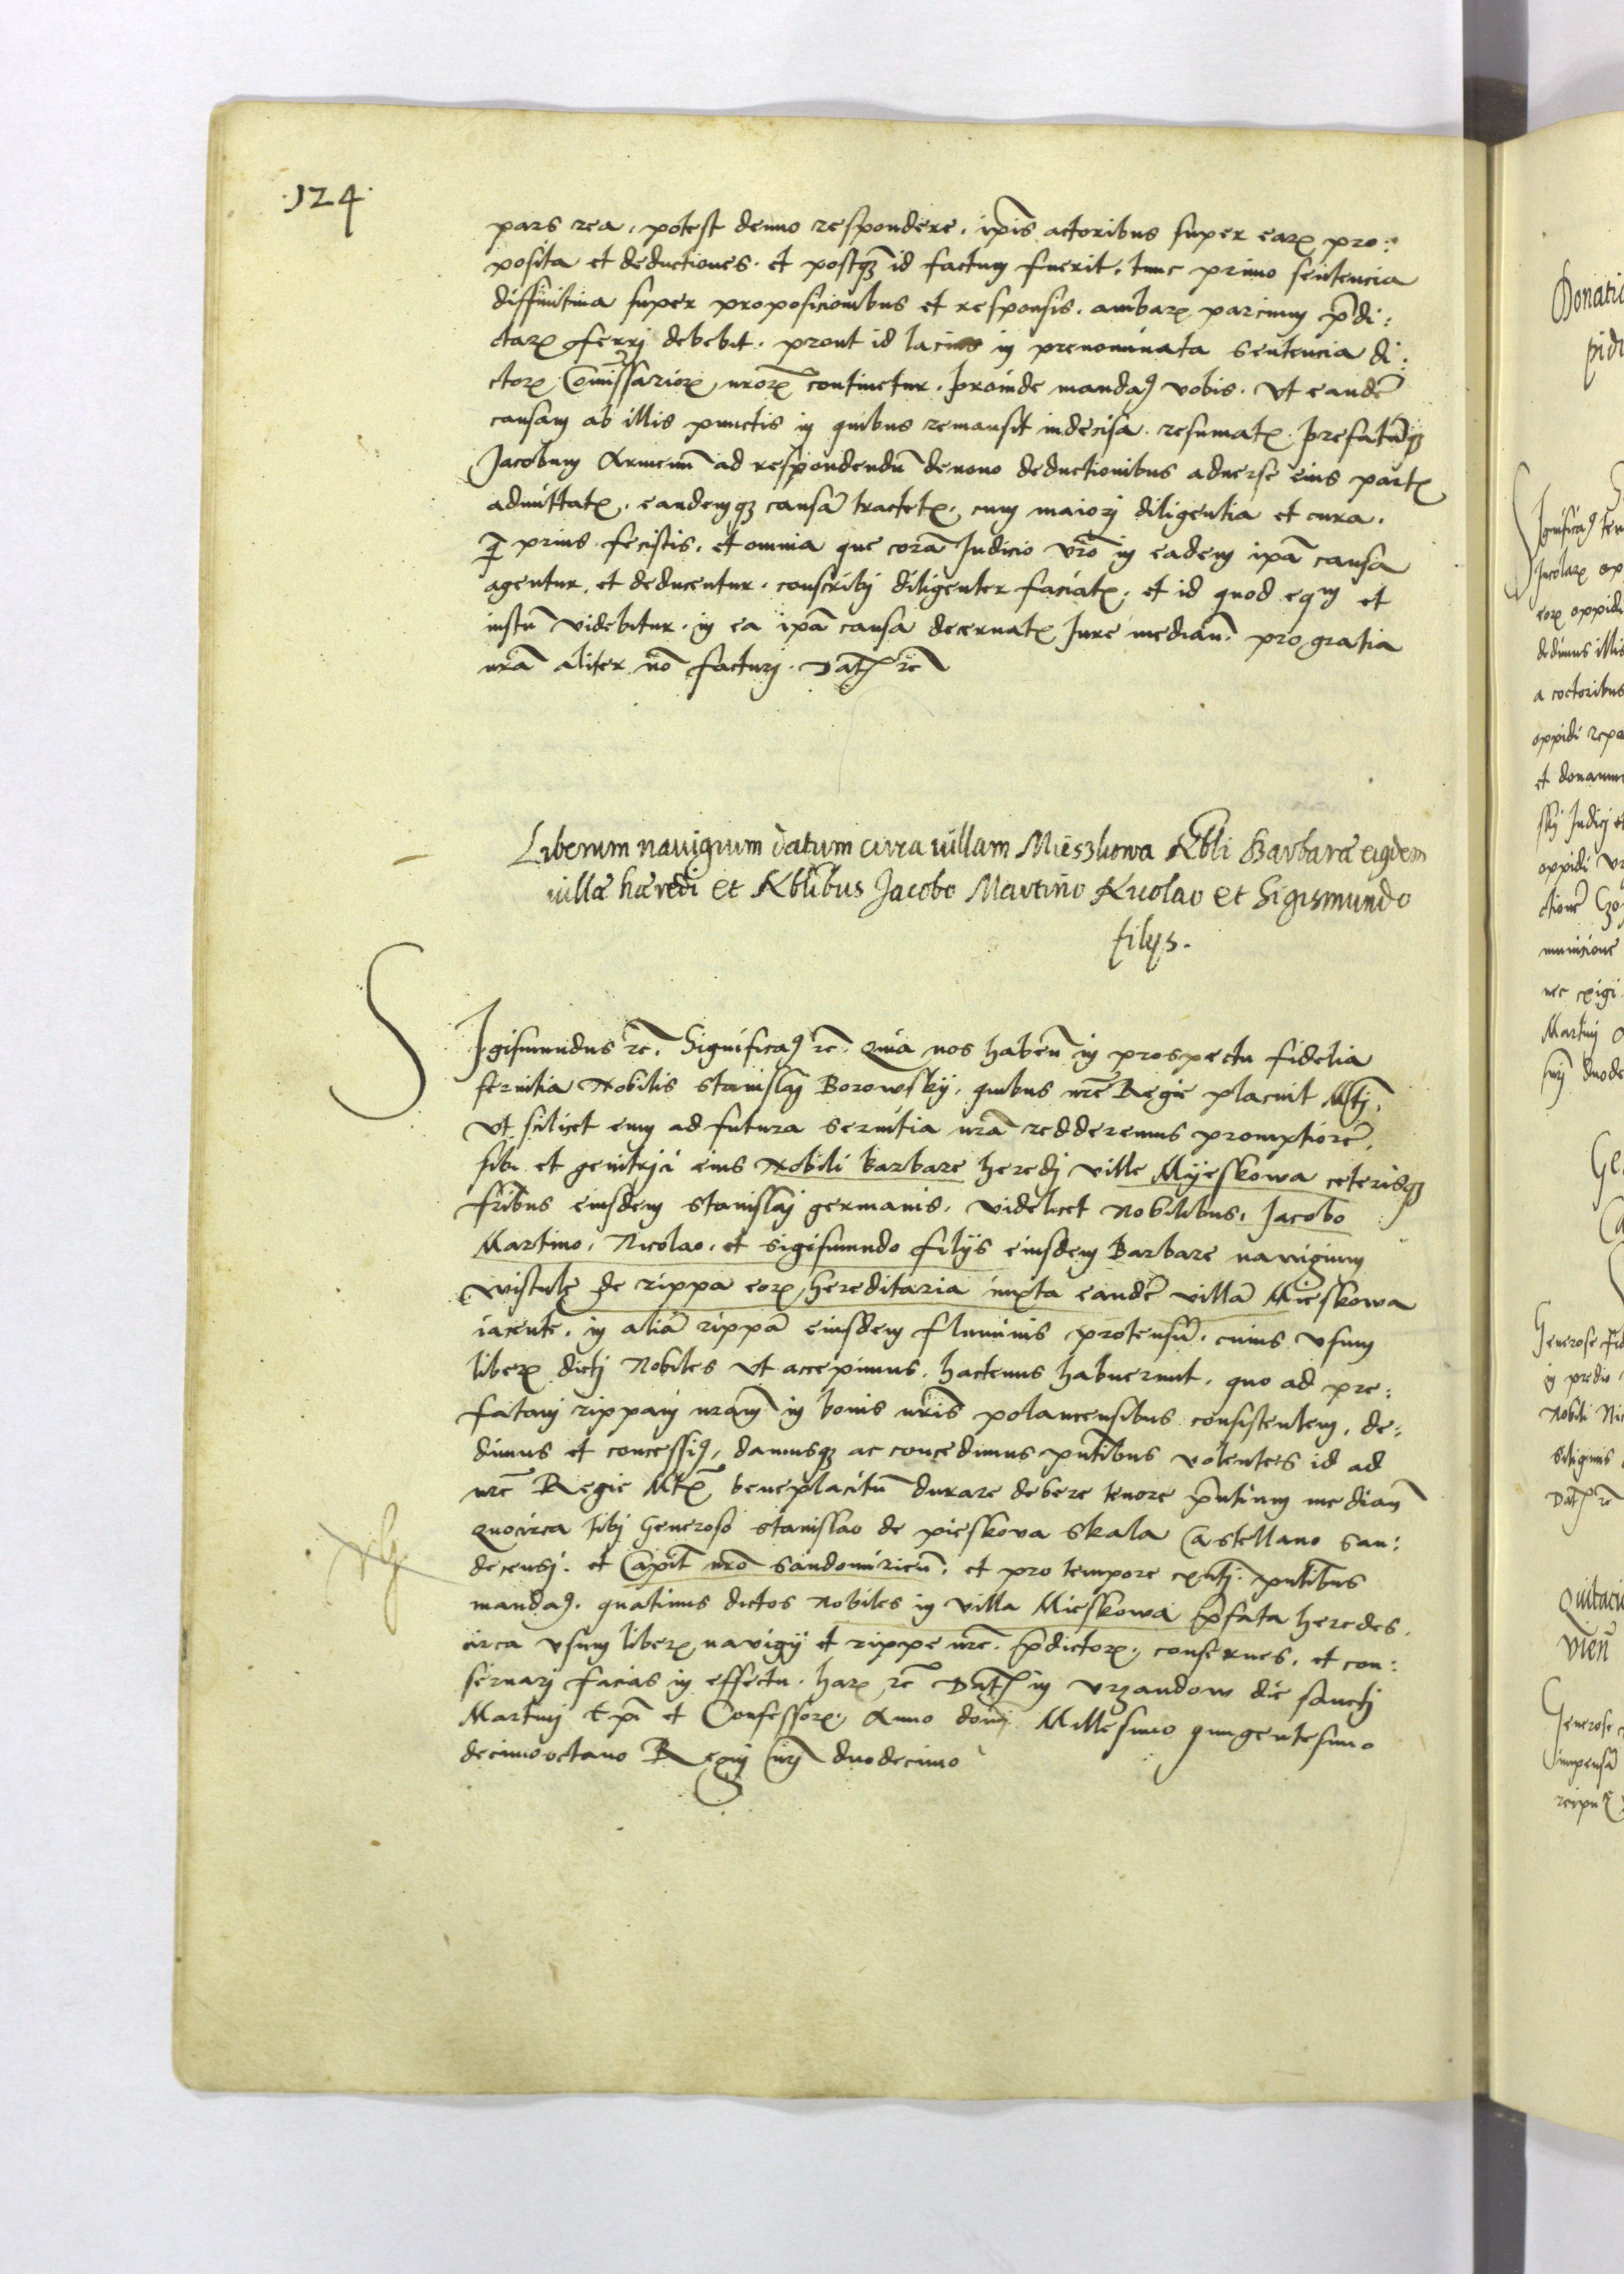 124
pars rea, potest denuo respondere, ip̃is actoribus super earꝝ pro:
posita et deductiones. et postqꝫ id factum fuerit, tunc primo sentencia
diffinitiua super proposicionibus et responsis, ambarꝝ parcium p̃di:
ctarꝝ ferrj debebit, prout id lacius in prenominata sentencia di:
ctorꝝ Com̃issariorꝝ nr̃orꝝ continetur. Proinde mandaꝰ vobis, vt eandẽ
causam ab illis punctis in quibus remansit indecisa, resumatꝭ, prefatũqꝫ
Jacobum Armenũ ad respondendũ denouo deductionibus aduerse eius partꝭ
admittatꝭ, eandemqꝫ causã tractetꝭ, cum maiorj diligentia et cura,
q̃ prius fecistis, et omnia que corã Judicio vr̃o in eadem ip̃a causa
agentur, et deducentur, conscribj diligenter faciatꝭ, et id quod equm et
iustũ videbitur, in ea ip̃a causa decernatꝭ Jure median̄. pro gratia
nr̃a aliter nõ facturj. Datꝭ rc̃
Liberum nauigium datum circa uillam Mieszkowa Nobli Barbaræ eiusdem
uillæ hæredi et Nbłibus Jacobo Martino Nicolao et Sigismundo
filijs.
SIgismundus rc̃. Significaꝰ rc̃. Quia nos haben̄ in prospectu fidelia
seruitia Nobilis Stanislaj Borowskij, quibus nr̃e Regie placuit Mtj,
vt scilicet eum ad futura seruitia nr̃a redderemus promptiorẽ,
sibi et genitricj eius Nobili barbare heredj ville Myeskowa ceterisqꝫ
fr̃ibus eiusdem Stanislaj germanis, videlicet Nobilibus, Jacobo
Martino, Nicolao, et Sigismundo filijs eiusdem Barbare nauigium
wistule de rippa eorꝝ hereditaria iuxta eandẽ villã Mieskowa
iacente, in aliã rippã eiusdem fluminis protensũ, cuius vsum
liberꝝ dictj Nobiles vt accepimus, hactenus habuerunt, quo ad pre:
fatam rippam nr̃am in bonis nr̃is polancensibus consistentem, de:
dimus et concessiꝰ, damusqꝫ ac concedimus pn̄tibus volentes id ad
nr̃e Regie Mtꝭ beneplacitũ durare debere tenore pn̄tium median̄
Quocirca tibj Generoso Stanislao de pieskova skala Castellano San:
decensj, et Capit̃ nr̃o Sandomirien̄, et pro tempore exn̄tj, pn̄tibus
mandaꝰ, quatinus dictos Nobiles in villa Mieskowa p̃fata heredes,
circa vsum liberꝝ nauigij et rippe nr̃e, p̃dictorꝝ, conserues, et con:
seruarj facias in effectu. harꝝ rc̃ Datꝭ in vrzandow die sanctj
Martinj Ep̃i et Confessorꝭ, Anno dom̃j Millesimo quingentesimo
decimooctauo Regnj nr̃j duodecimo